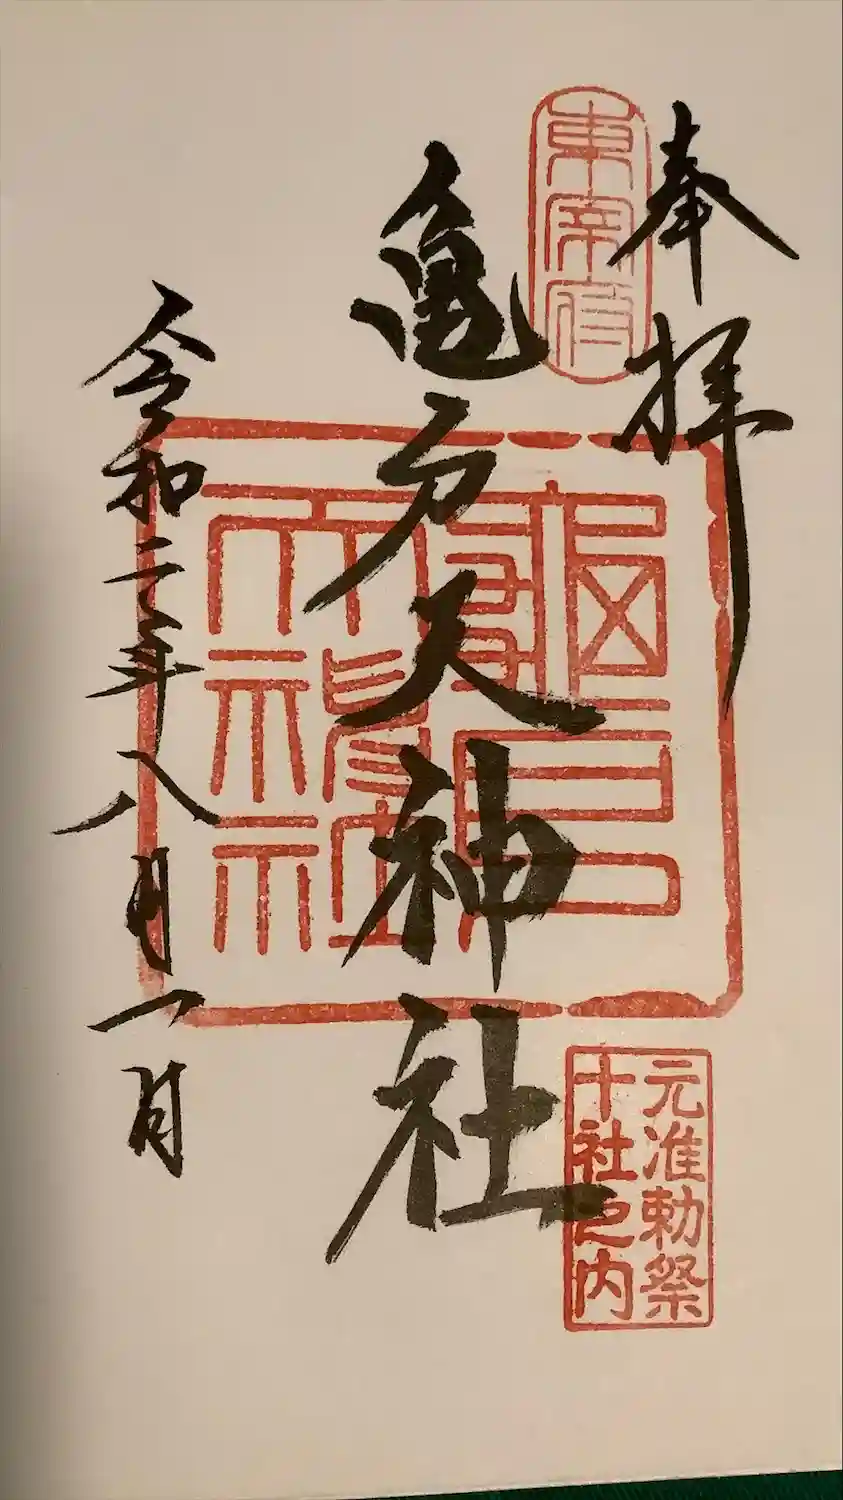 奉拝
東宰府
亀戸天神社
龜戸
天神社
元准勅祭
十社之内
令和二年八月一日